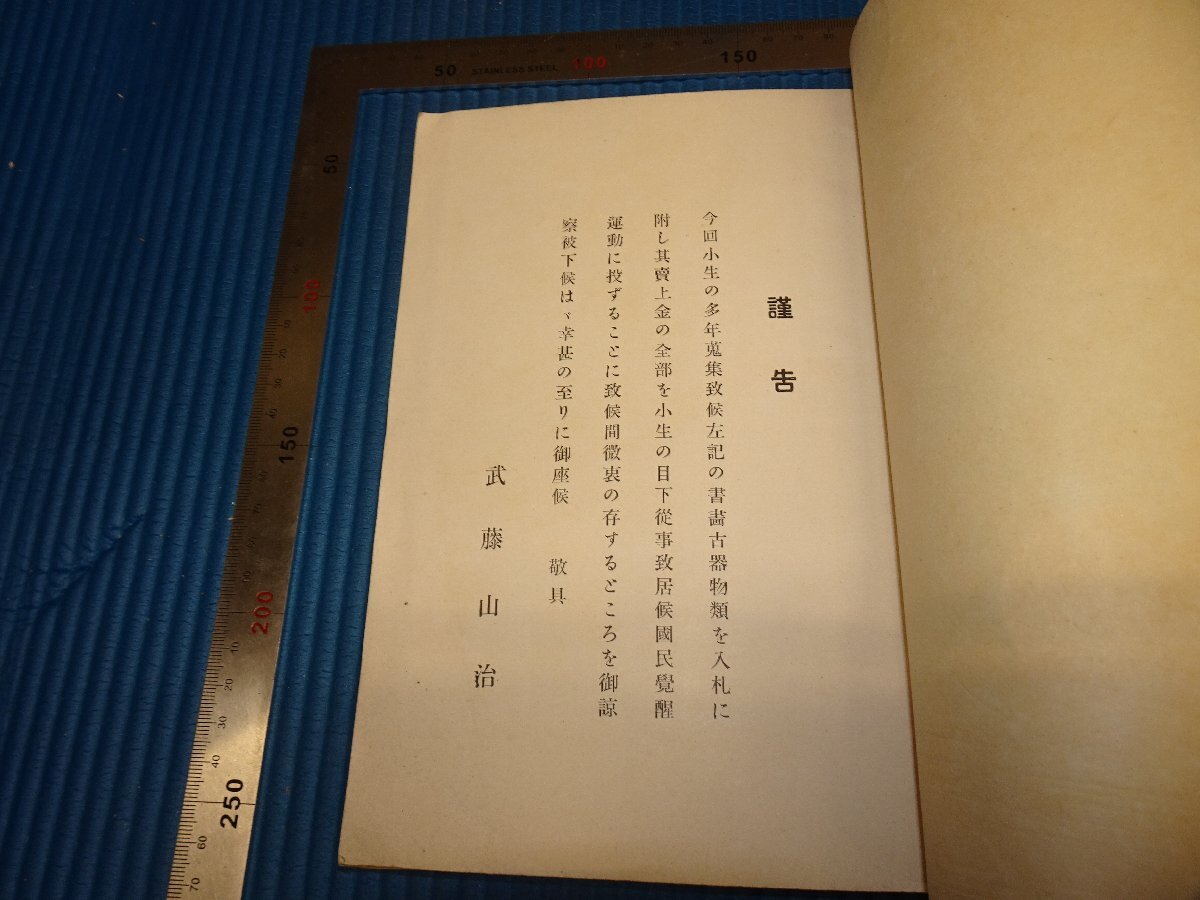 謹告
今回小生の多年蒐集致候左記の書畵古器物類を入札に
附し其賣上金の全部を小生の目下從事致居候國民覺醒
運動に投ずることに致候間微衷の存するところを御諒
察被下候はゞ幸甚の至りに御座候 敬具
武藤山治
50 STAINLESS STEEL 100 150
50
100
150
200
250